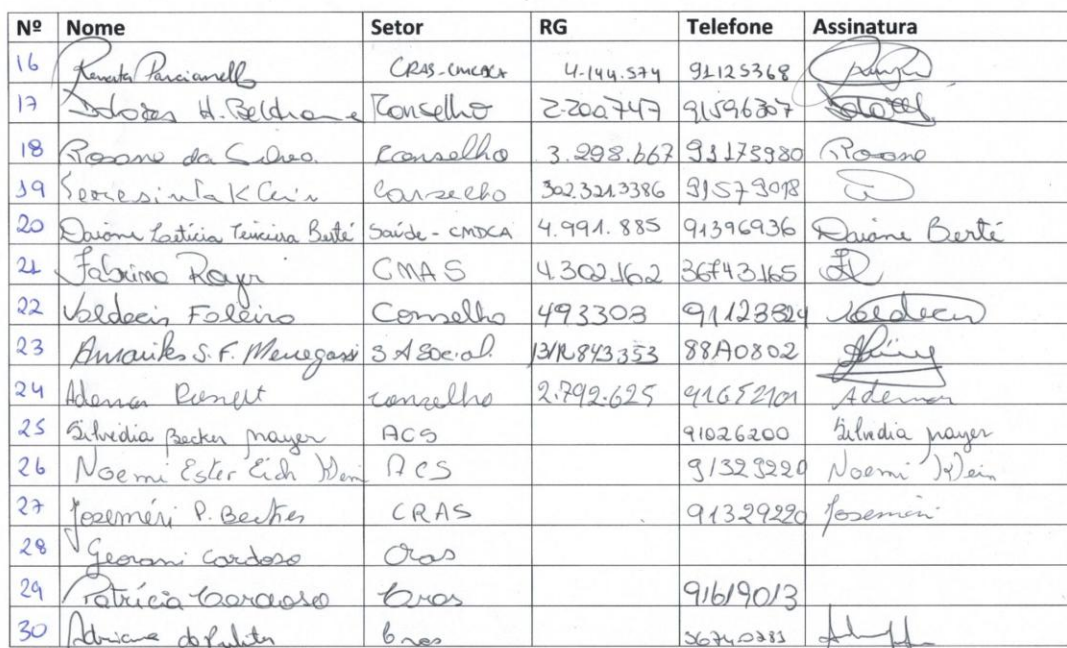 Nº Nome Setor RG Telefone Assinatura
16 Renata Parcianello CRAS-CMDCA 4.144.574 91125368
17 H. Conselho 2.200.747 91596307
18 Rosane da Silva Conselho 3.298.667 91173980 Rosane
19 K 302.321.3386 91579018
20 Daiane Letícia Teixeira Berté Saúde - CMDCA 4.991.885 91396936 Daiane Berté
21 CMAS 4.302.162 36743165
22 Conselho 493303 Valdecir
23 S. F. Menegassi S A Social
24 Ademar conselho 2.792.625 91652101 Ademar
25 Silvidia Becker mayer ACS 91026200 Silvidia mayer
26 Noemi Ester Eich Klein ACS 91329220 Noemi Klein
27 Joseméri P. Becker CRAS 91329220 Josemeri
28 Cardoso Cras
29 Patrícia Cardoso Cras 91619013
30 Adriane Cras